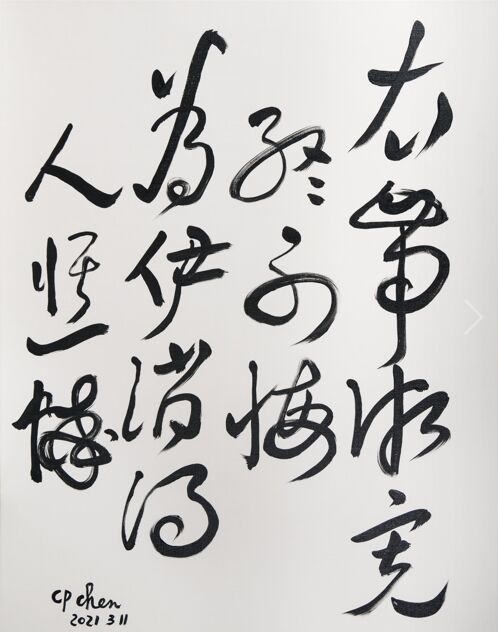 衣带渐宽
终不悔
为伊消得
人憔悴
CP Chen
2021 3 11